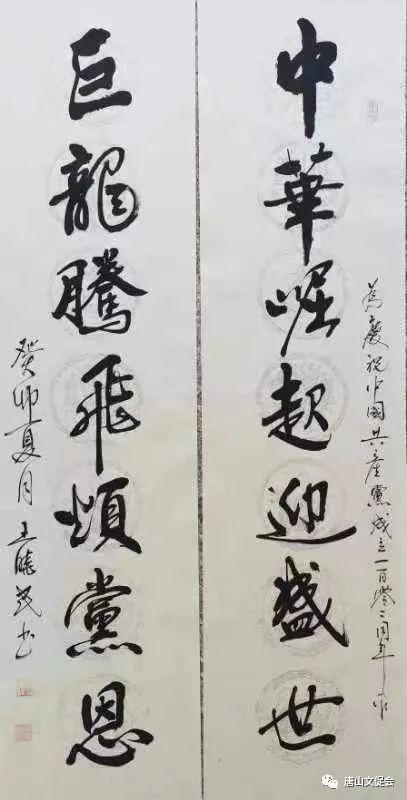 中華崛起迎盛世
為慶祝中國共産黨成立一百零二周年作
巨龍騰飛頌黨恩
癸卯夏月王曉茂书
唐山文促会